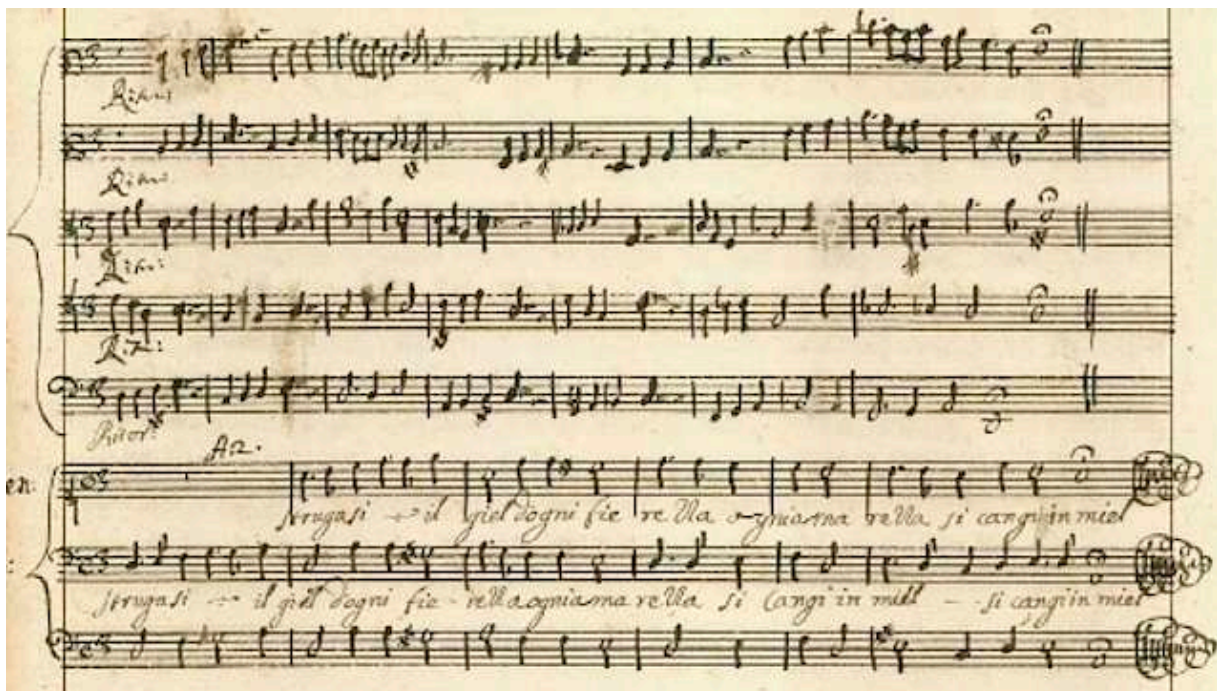 Ritor:
A 2.
en:
strugasi il giel dogni fie re lla ogniama rella si cangi in miel
strugasi il giel dogni fie - rella ogniama rella si cangi in miel - - si cangi in miel